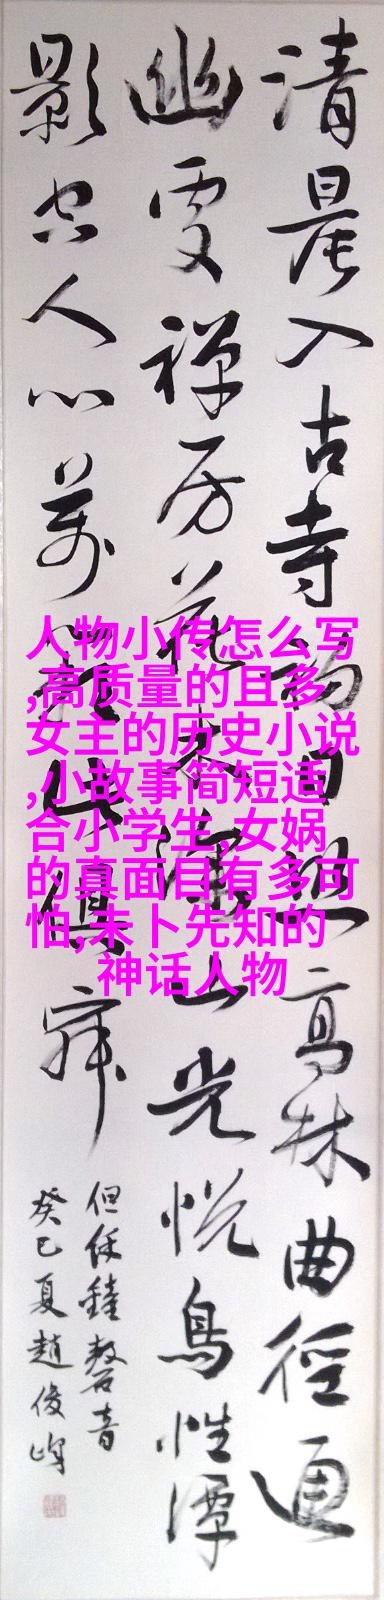 清晨入古寺初日照高林曲徑通
幽處禅房花木深山光悦鳥性潭
影空人心萬籟此俱寂
但餘鐘磬音
癸巳夏趙俊峰
人物小传怎么写
,高质量的且多
女主的历史小说
,小故事简短适
合小学生,女娲
的真面目有多可
怕,未卜先知的
神话人物